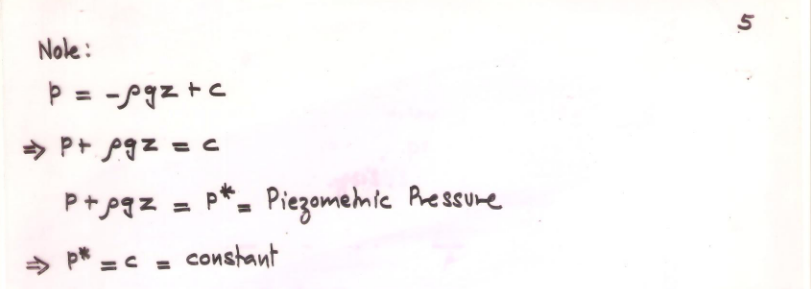 5
Note:
p = -ρgz + c
⇒ p + ρgz = c
p + ρgz = p* = Piezometric Pressure
⇒ p* = c = constant